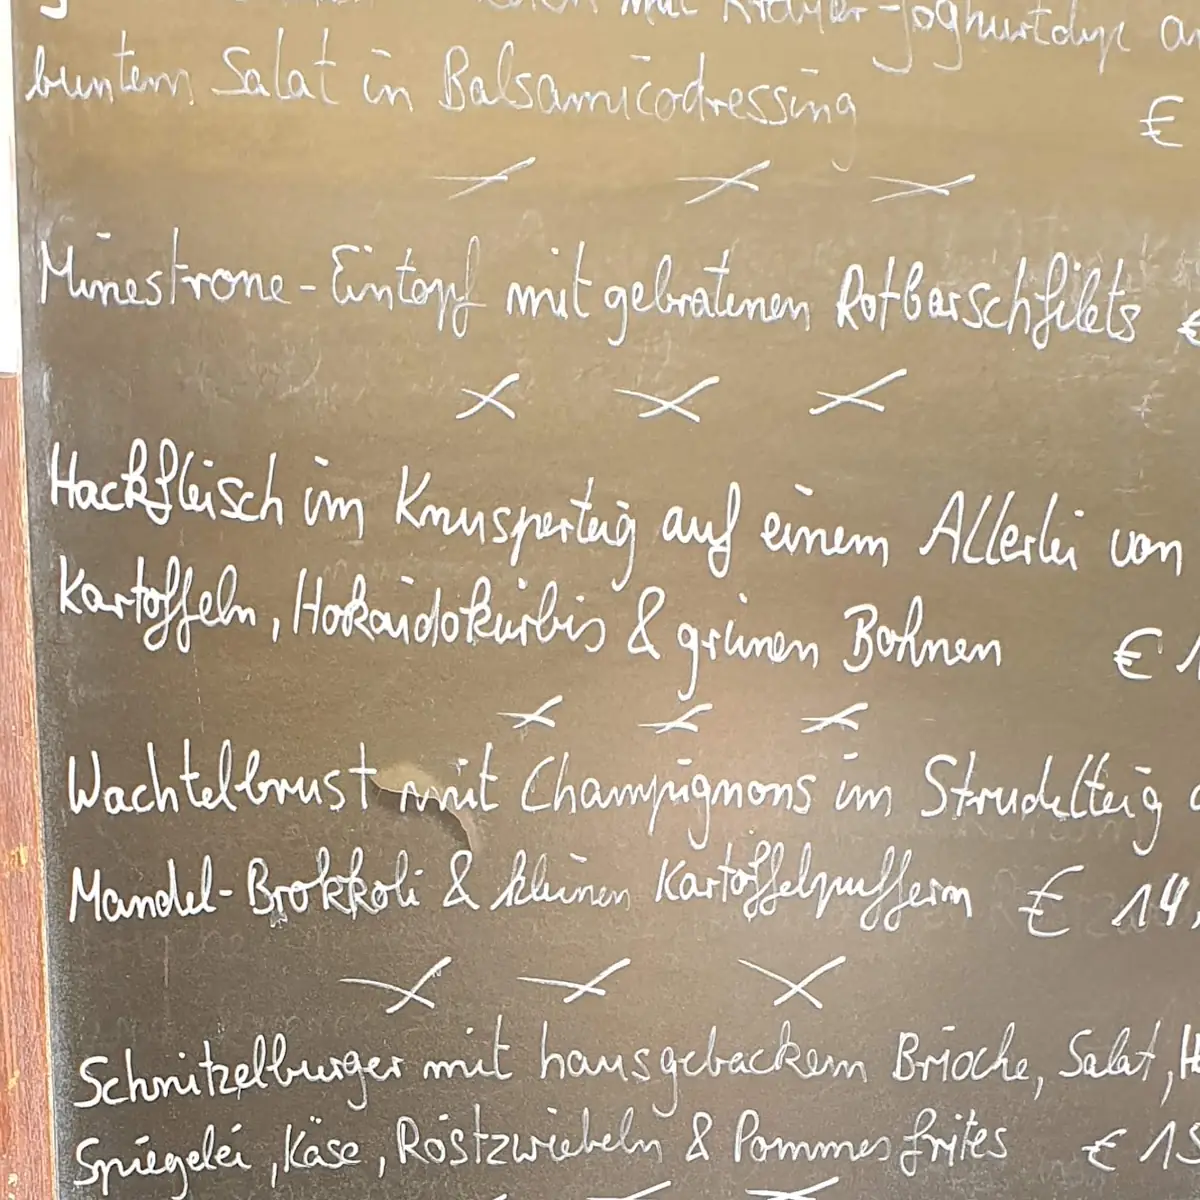 mit Kräuter-Joghurtdip
buntem Salat in Balsamicodressing €
Minestrone-Eintopf mit gebratenen Rotbarschfilets €
Hackfleisch im Knusperteig auf einem Allerlei von
Kartoffeln, Hokaidokürbis & grünen Bohnen € 1
Wachtelbrust mit Champignons im Strudelteig
Mandel-Brokkoli & kleinen Kartoffelpuffern € 14,
Schnitzelburger mit hausgebackem Brioche, Salat,
Spiegelei, Käse, Röstzwiebeln & Pommes frites € 15